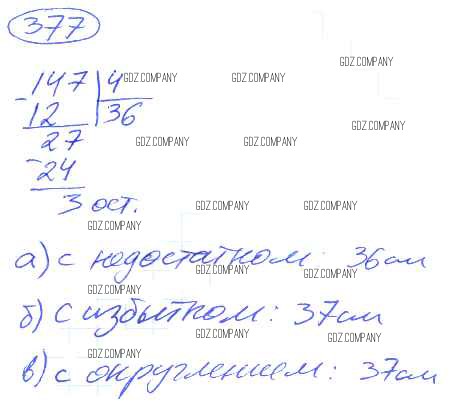 377
GDZ.COMPANY
147 | 4 GDZ.COMPANY GDZ.COMPANY
- 12 | 36
GDZ.COMPANY
27 GDZ.COMPANY GDZ.COMPANY
- 24
3 ост. GDZ.COMPANY GDZ.COMPANY
GDZ.COMPANY
а) с недостатком: 36см
GDZ.COMPANY GDZ.COMPANY
GDZ.COMPANY
б) с избытком: 37см
GDZ.COMPANY GDZ.COMPANY
GDZ.COMPANY
в) с округлением: 37см